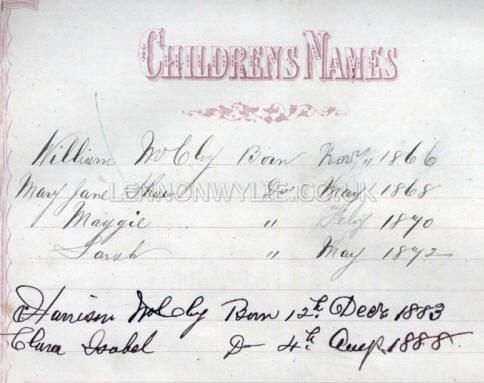 CHILDRENS NAMES
William McCby Born Novr " 1866
Mary Jane Do May 1868
Maggie " Feby 1870
Sarah " May 1872
Harrison McCby Born 12th Decr 1883
Clara Isabel D 4th Aug. 1888.
LENNONWYLIE.CO.UK